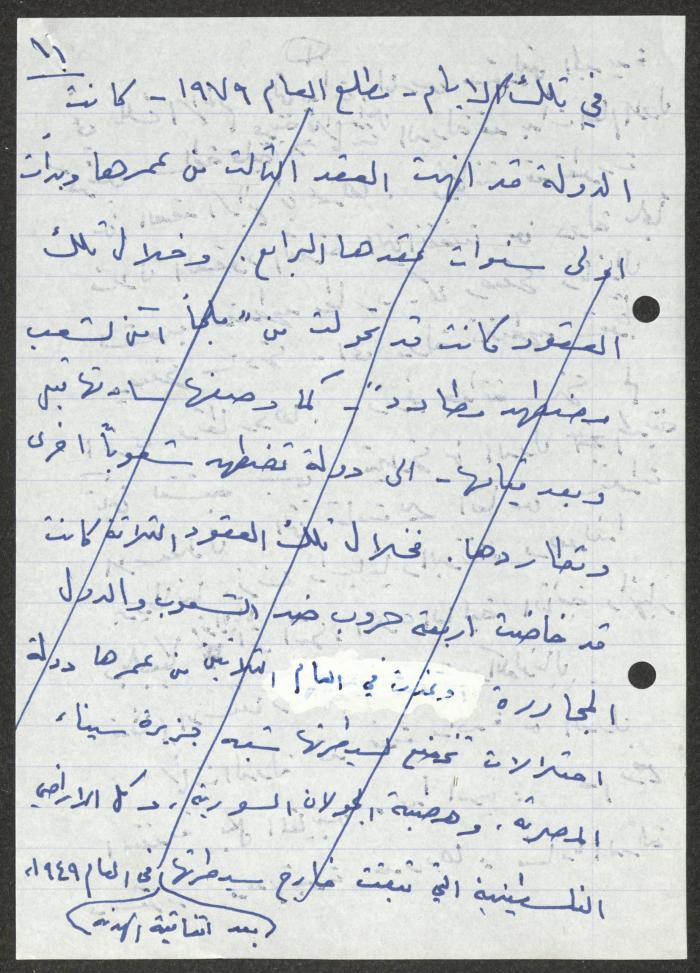 ١١
في تلك الايام - مطلع العام ١٩٧٩ - كانت
الدولة قد انهت العقد الثالث من عمرها وبدأت
اولى سنوات عقدها الرابع. وخلال تلك
العقود كانت قد تحولت من "ملجأ آمن لشعب
مضطهد مطارد" - كما وصفها سادتها قبل
وبعد قيامها - الى دولة تضطهد شعوباً اخرى
وتطاردها. فخلال تلك العقود الثلاثة كانت
قد خاضت اربعة حروب ضد الشعوب والدول
المجاورة وغدت في العام الثلاثين من عمرها دولة
احتلالات تخضع لسيطرتها شبه جزيرة سيناء
المصرية، وهضبة الجولان السورية، وكل الاراضي
الفلسطينية التي تبقت خارج سيطرتها في العام ١٩٤٩،
(بعد اتفاقية الهدنة)